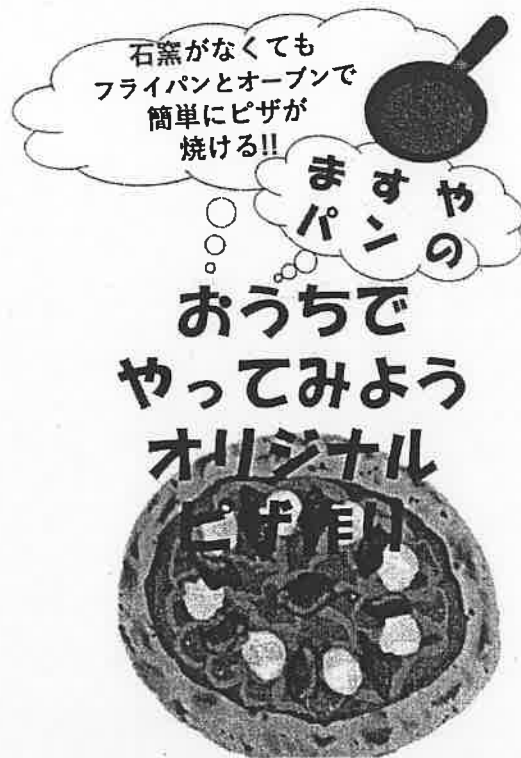 石窯がなくても
フライパンとオーブンで
簡単にピザが
焼ける!!
ますや
パンの
おうちで
やってみよう
オリジナル
ピザ作り